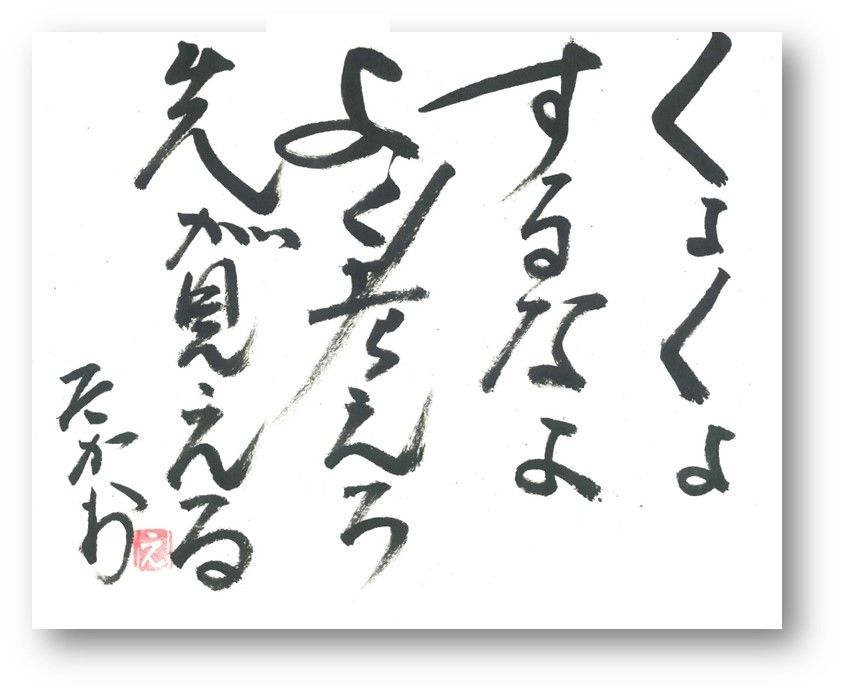 くよくよ
するなよ
よく考えろ
先が見える
たかお
え